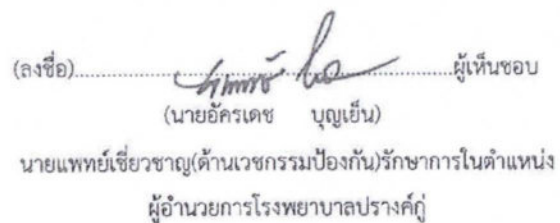 (ลงชื่อ)..............................................ผู้เห็นชอบ
(นายอัครเดช บุญเย็น)
นายแพทย์เชี่ยวชาญ(ด้านเวชกรรมป้องกัน)รักษาการในตำแหน่ง
ผู้อำนวยการโรงพยาบาลปรางค์กู่